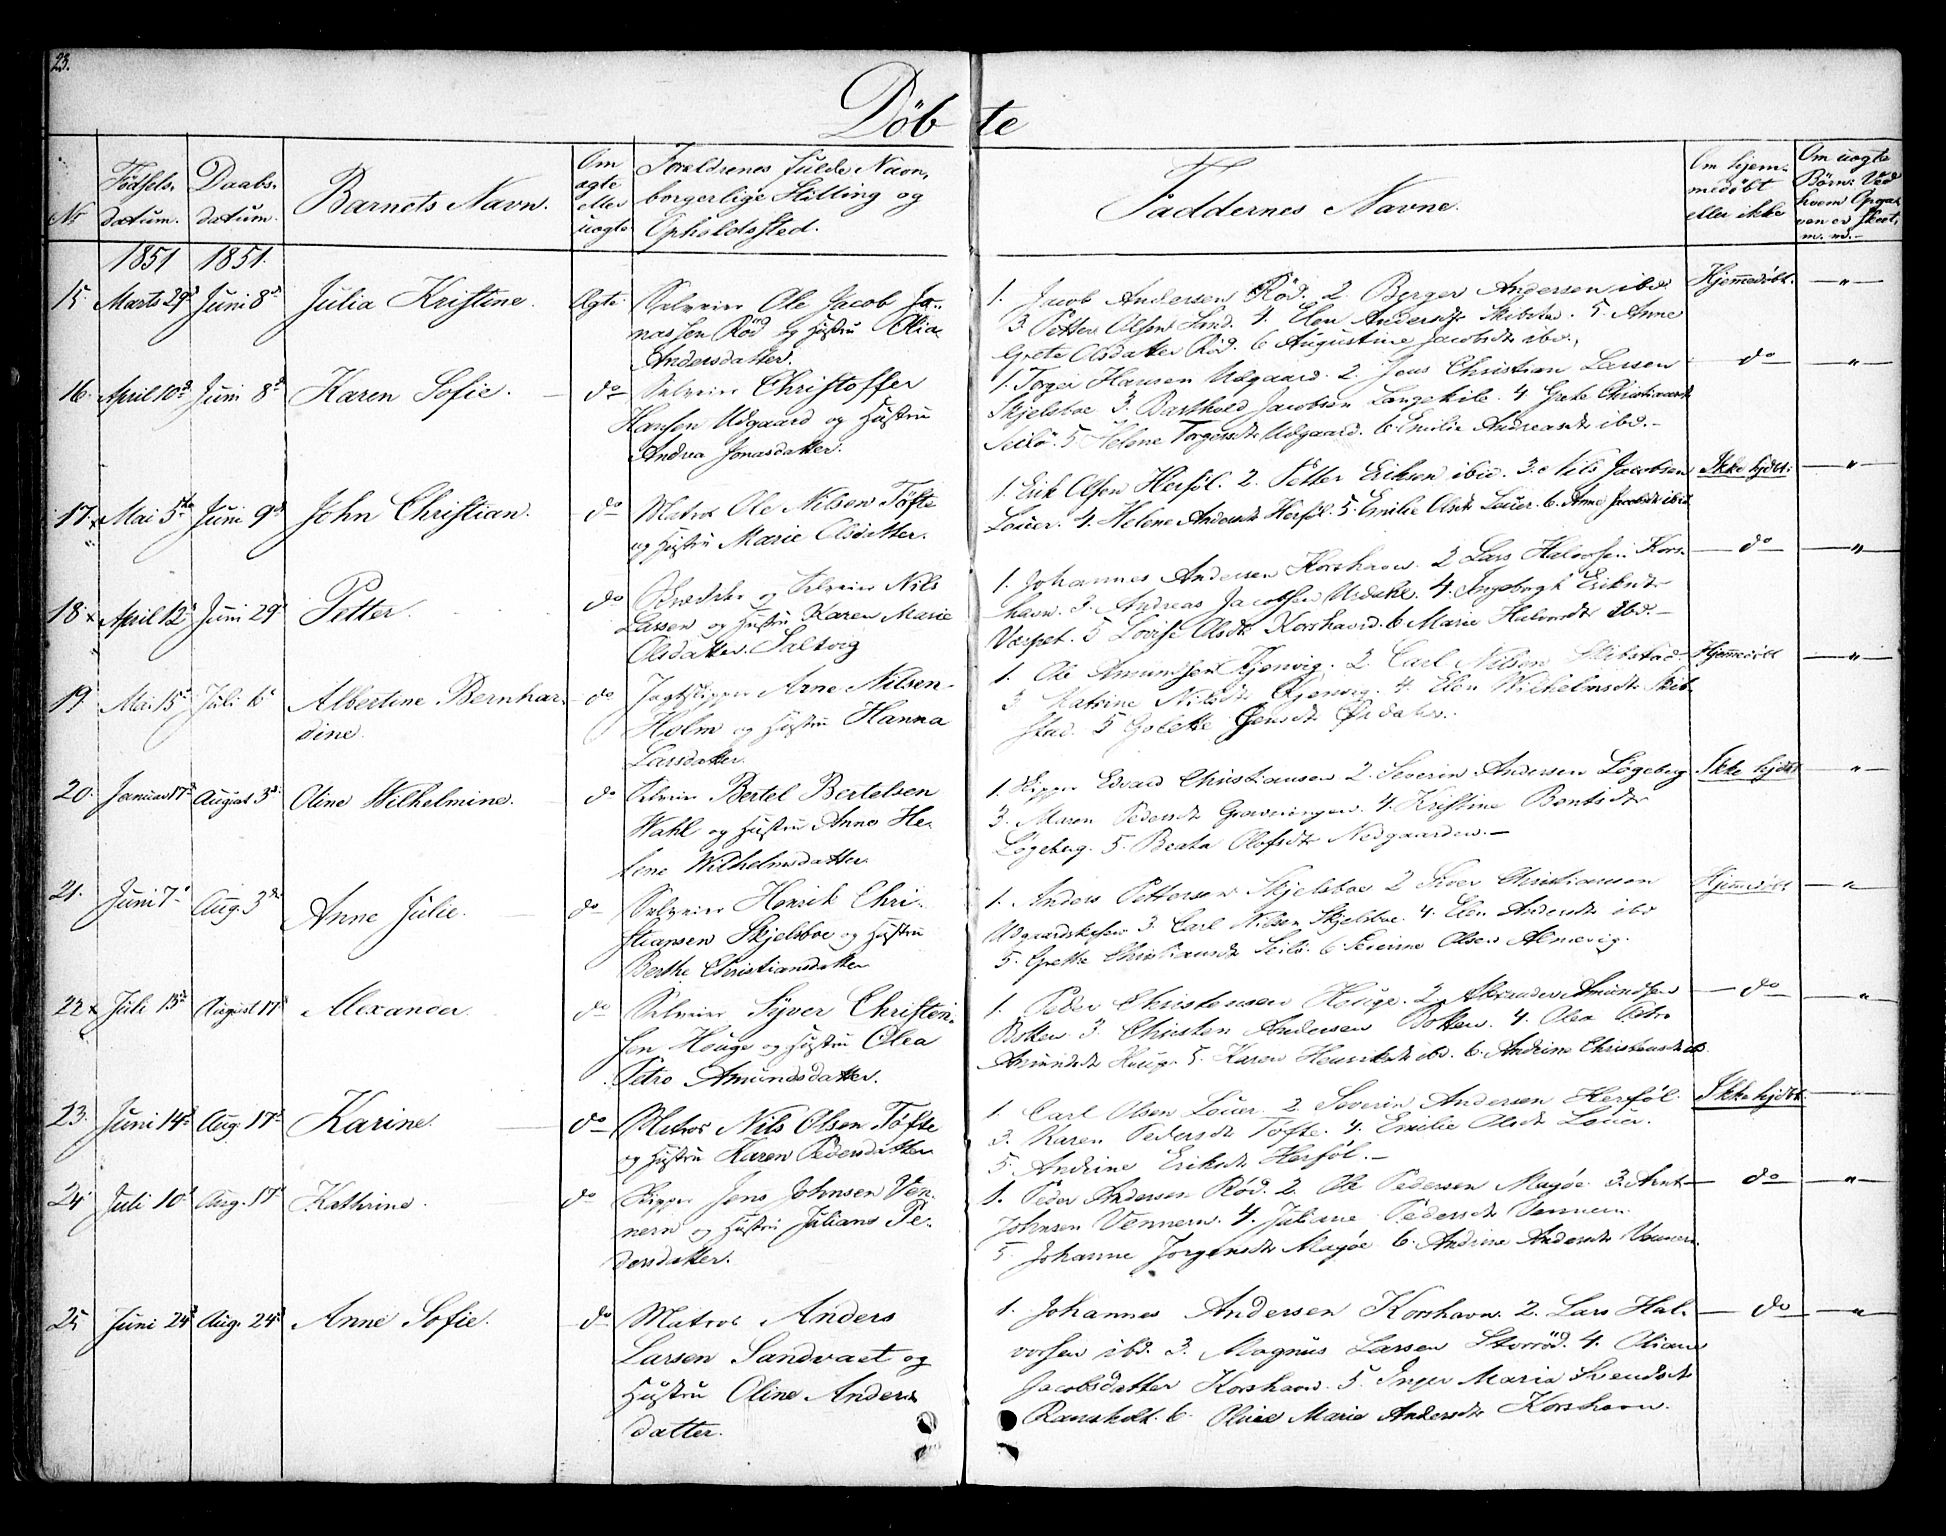 23.
Döbte
No
Födsels-
datum.
Daabs-
datum.
Barnets Navn.
Om
ægte
eller
uægte
Foreldrenes fulde Navn,
borgerlige Stilling og
Opholdssted.
Faddernes Navne.
Om hjem-
medöbt
eller ikke
Om uægte
Börn: Ved
hvem Opga-
ven er skeet,
m. m.
1851 1851.
15. Marts 29d Juni 8d Julia Kristine. Ægte. Selveier Ole Jacob Jo-
nassen Röd og Hustru Olia
Andersdatter.
1. Jacob Andersen Röd. 2. Berger Andersen ibd.
3. Petter Olsen Lind. 4. Elen Andersdtr Skibstad. 5. Anne
Grete Olsdatter Röd. 6 Augustine Jacobsdt ibd.
Hjemmedöbt. — " —
16. April 10d Juni 8d Karen Sofie. do Selveier Christoffer
Hansen Udgaard og Hustru
Andrea Jonasdatter.
1. Torger Hansen Udgaard. 2. Jens Christian Larsen
Skjelsboe 3. Barthold Jacobsen Langekile. 4 Grete Christiansdt
Seilö. 5 Helene Torgersdt Udgaard. 6 Emilie Andreasdt ibd. —
do — " —
17. x Mai 5te Juni 9de John Christian. do Matros Ole Nilsen Töfte
og Hustru Marie Olsdatter.
1. Erik Olsen Herföl. 2. Petter Eriksen ibid. 3. Nils Jacobsen
Löuer. 4. Helene Andersdt Herföl. 5. Emilie Olsdt Löuer. 6. Anne Jacobsdt ibid
Ikke hjdbt. — " —
18. x April 12d Juni 29d Petter. do Skrædder og Selveier Nils
Larsen og Hustru Karen Marie
Olsdatter. Saltvig
1. Johannes Andersen Korshavn. 2 Lars Halvorsen Kors-
havn. 3. Andreas Jacobsen Urdahl. 4. Ingeborgh Eriksdt
Vaspet. 5 Lovise Olsdt Korshavn. 6 Marie Halvorsdt ibd. —
do — " —
19. Mai 15d Juli 6d Albertine Bernhar-
dine. do Jagtskipper Arne Nilsen
Holm og Hustru Hanna
Larsdatter.
1. Ole Amundsen Kjenvig. 2. Carl Nilsen Skibstad.
3. Katrine Nilsdt Kjenvig. 4. Elen Wilhelmsdt Skib-
stad. 5 Golette Jensdt
Hjemmedöbt — " —
20. Januar 17d August 3d. Oline Wilhelmine. do Selveier Bertel Bertelsen
Wahl og Hustru Anne He-
lene Wilhelmsdatter.
1. Skipper Edvard Christiansen 2. Severin Andersen Lögeberg
3. Maren Pedersdt Graveningen. 4. Kristine Bentsdtr
Lögeberg. 5. Beata Olofsdt Nedgaarden. —
Ikke hjdbt — " —
21. Juni 7d Aug. 3de Anne Julie. do Selveier Henrik Chri-
stiansen Skjelsboe og Hustru
Berthe Christiansdatter
1. Anders Pettersen Skjelsboe 2 Siver Christiansen
Udgaardskasen 3. Carl Nilsen Skjelsboe. 4. Elen Andersdt ibd
5. Grethe Christiansdt Seilö. 6 Severine Olsen Almevig.
Hjemmedöbt — " —
22 x Juli 13d August 17d Alexander. do Selveier Syver Christen-
sen Houge og Hustru Olea
Petro Amundsdatter.
1. Peder Christensen Houge. 2. Alexander Amundsen
Botten 3. Christen Andersen Botten. 4. Olea Petro
Amundsdt Houg. 5. Karen Henriksdt ibd. 6. Andrine Christensdt ib.
do — " —
23. Juni 14d Aug. 17d Karine. do Matros Nils Olsen Töfte
og Hustru Karen Pedersdatter
1. Carl Olsen Löuer 2. Severin Andersen Herföl.
3. Karen Pedersdt Töfte. 4. Emilie Olsdt Löuer.
5. Andrine Eriksdt Herföl. —
Ikke hjdbt. — " —
24 Juli 10d Aug. 17d Kathrine. do Skipper Jens Johnsen Ven-
nern og Hustru Juliane Pe-
dersdatter.
1. Peder Andersen Röd. 2. Ole Pedersen Magöe. 3. Arnt
Johnsen Vennern. 4. Juliane Pedersdt Vennern
5. Johanne Jorgensdt Magöe 6. Andrine Andersdt Venner.
do — " —
25 Juni 24d Aug. 24d Anne Sofie. do Matros Anders
Larsen Sandvaet og
Hustru Oline Anders
datter.
1. Johannes Andersen Korshavn. 2. Lars Hal-
vorsen ibd. 3. Magnus Larsen Storröd. 4. Oliane
Jacobsdatter Korshavn. 5. Inger Maria Svendsdt
Ramsholt. 6. Oline Marie Andersdt Korshavn.
do — " —